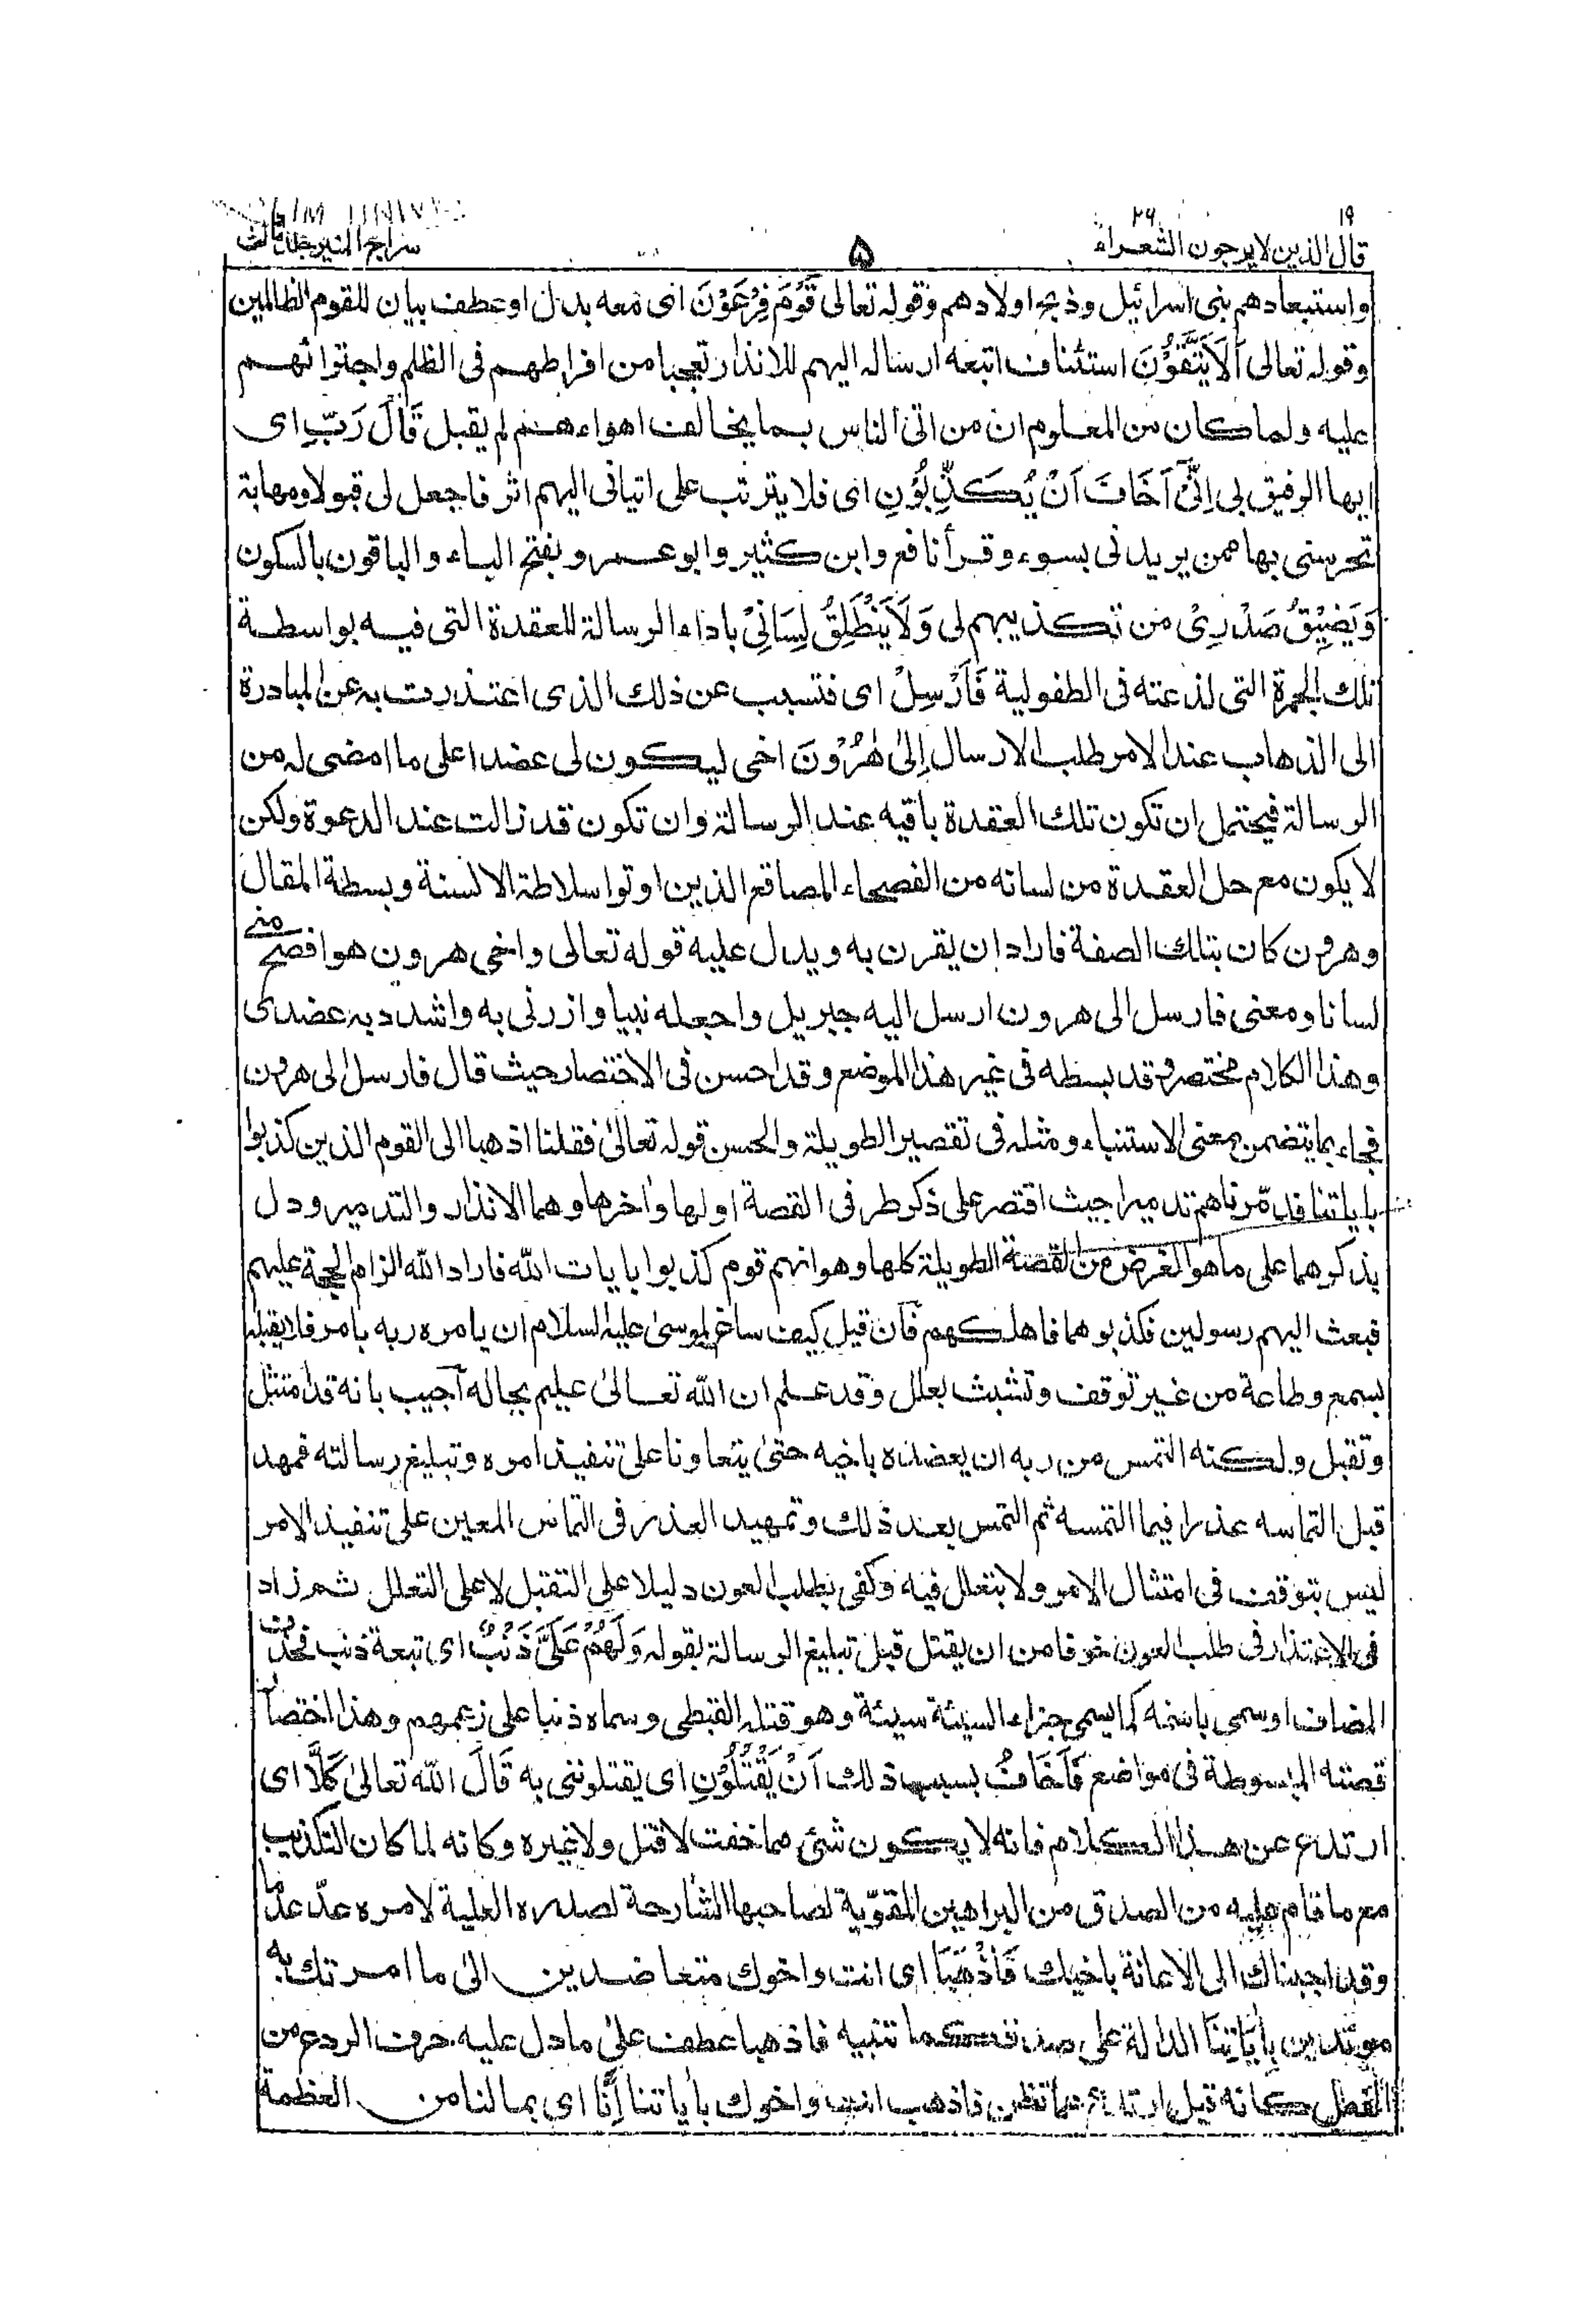 ۱۹ ۲۶
قال الذين لا يرجون الشعراء ۵ سراج المنير جلد ثالث
واستبعادهم بنى اسرائيل وذبح اولادهم وقوله تعالى قَوْمَ فِرْعَوْنَ اى معه بدل او عطف بيان للقوم الظالمين
وقوله تعالى اَلَا يَتَّقُوْنَ استئناف اتبعه ارساله اليهم للانذار تعجبا من افراطهم فى الظلم واجترائهم
عليه ولما كان من المعلوم ان من اتى الناس بما يخالف اهواءهم لم يقبل قَالَ رَبِّ اى
ايها الرفيق بى اِنِّىْ اَخَافُ اَنْ يُكَذِّبُوْنِ اى فلا يترتب على اتيانى اليهم اثر فاجعل لى قبولا ومهابة
تحرسنى بها ممن يريدنى بسوء وقرأ نافع وابن كثير وابو عمرو بفتح الياء والباقون بالسكون
وَيَضِيْقُ صَدْرِىْ من تكذيبهم لى وَلَا يَنْطَلِقُ لِسَانِىْ باداء الرسالة للعقدة التى فيه بواسطة
تلك الجمرة التى لذعته فى الطفولية فَاَرْسِلْ اى فتسبب عن ذلك الذى اعتذرت به عن المبادرة
الى الذهاب عند الامر طلب الارسال اِلىٰ هٰرُوْنَ اخى ليكون لى عضدا على ما امضى له من
الرسالة فيحتمل ان تكون تلك العقدة باقيه عند الرسالة وان تكون قد زالت عند الدعوة ولكن
لا يكون مع حل العقدة من لسانه من الفصحاء المصاقع الذين اوتوا سلاطة الالسنة وبسطة المقال
وهرون كان بتلك الصفة فاراد ان يقرن به ويدل عليه قوله تعالى واخى هرون هو افصح منى
لسانا ومعنى فارسل الى هرون ارسل اليه جبريل واجعله نبيا وازرنى به واشدد به عضدى
وهذا الكلام مختصر وقد بسطه فى غير هذا الموضع وقد احسن فى الاختصار حيث قال فارسل الى هرون
فجاء بما يتضمن معنى الاستنباء ومثله فى تقصير الطويلة والحسن قوله تعالىٰ فقلنا اذهبا الى القوم الذين كذبوا
باياتنا فدمّرناهم تدميرا حيث اقتصر على ذكر طرفى القصة اولها واخرها وهما الانذار والتدمير ودل
بذكرهما على ما هو الغرض من القصة الطويلة كلها وهو انهم قوم كذبوا بايات الله فاراد الله الزام الحجة عليهم
فبعث اليهم رسولين فكذبوهما فاهلكهم فان قيل كيف ساغ لموسىٰ عليه السلام ان يامره ربه بامر فلا يقبله
بسمع وطاعة من غير توقف وتشبث بعلل وقد علم ان الله تعالىٰ عليم بحاله اجيب بانه قد امتثل
وتقبل ولكنه التمس من ربه ان يعضده باخيه حتىٰ يتعاونا على تنفيذ امره وتبليغ رسالته فمهد
قبل التماسه عذرا فيما التمسه ثم التمس بعد ذلك وتمهيد العذر فى التماس المعين على تنفيذ الامر
ليس بتوقف فى امتثال الامر ولا بتعلل فيه وكفى بطلب العون دليلا على التقبل لا على التعلل ثم زاد
فى الاعتذار فى طلب العون خوفا من ان يقتل قبل تبليغ الرسالة بقوله وَلَهُمْ عَلَىَّ ذَنْبٌ اى تبعة ذنب فحذف
المضاف او سمى باسمه كما يسمى جزاء السيئة سيئة وهو قتله القبطى وسماه ذنبا على زعمهم وهذا اختصار
قصته المبسوطة فى مواضع فَاَخَافُ بسبب ذلك اَنْ يَقْتُلُوْنِ اى يقتلوننى به قَالَ الله تعالىٰ كَلَّا اى
ارتدع عن هذا الكلام فانه لا يكون شئ مما خفت لا قتل ولا غيره وكانه لما كان التكذيب
مع ما قام عليه من الصدق من البراهين المقوّية لصاحبها الشارحة لصدره العلية لامره عدّ عدما
وقد اجبناك الى الاعانة باخيك فَاذْهَبَا اى انت واخوك متعاضدين الىٰ ما امرتك به
مؤيدين بِاٰيَاتِنَا الدالة على صدقكما تنبيه فاذهبا عطف علىٰ ما دل عليه حرف الردع من
الفعل كانه قيل ارتدع عما تظن فاذهب انت واخوك باياتنا اِنَّا اى بما لنا من العظمة